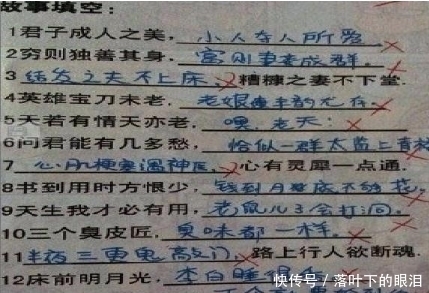 故事填空：
1君子成人之美，小人夺人所爱
2穷则独善其身，富则妻妾成群。
3结发之夫不上床，糟糠之妻不下堂.
4英雄宝刀未老，老娘风韵尤存.
5天若有情天亦老，嘿.老天：
6问君能有几多愁，恰似一群太监上青楼
7 心肌梗塞遇神医，心有灵犀一点通.
8书到用时方恨少，钱到月底不够花，
9天生我才必有用，老鼠儿子会打洞.
10三个臭皮匠，臭味都一样.
11半夜三更鬼敲门，路上行人欲断魂.
12床前明月光，李白睡得
快传号／落叶下的眼泪